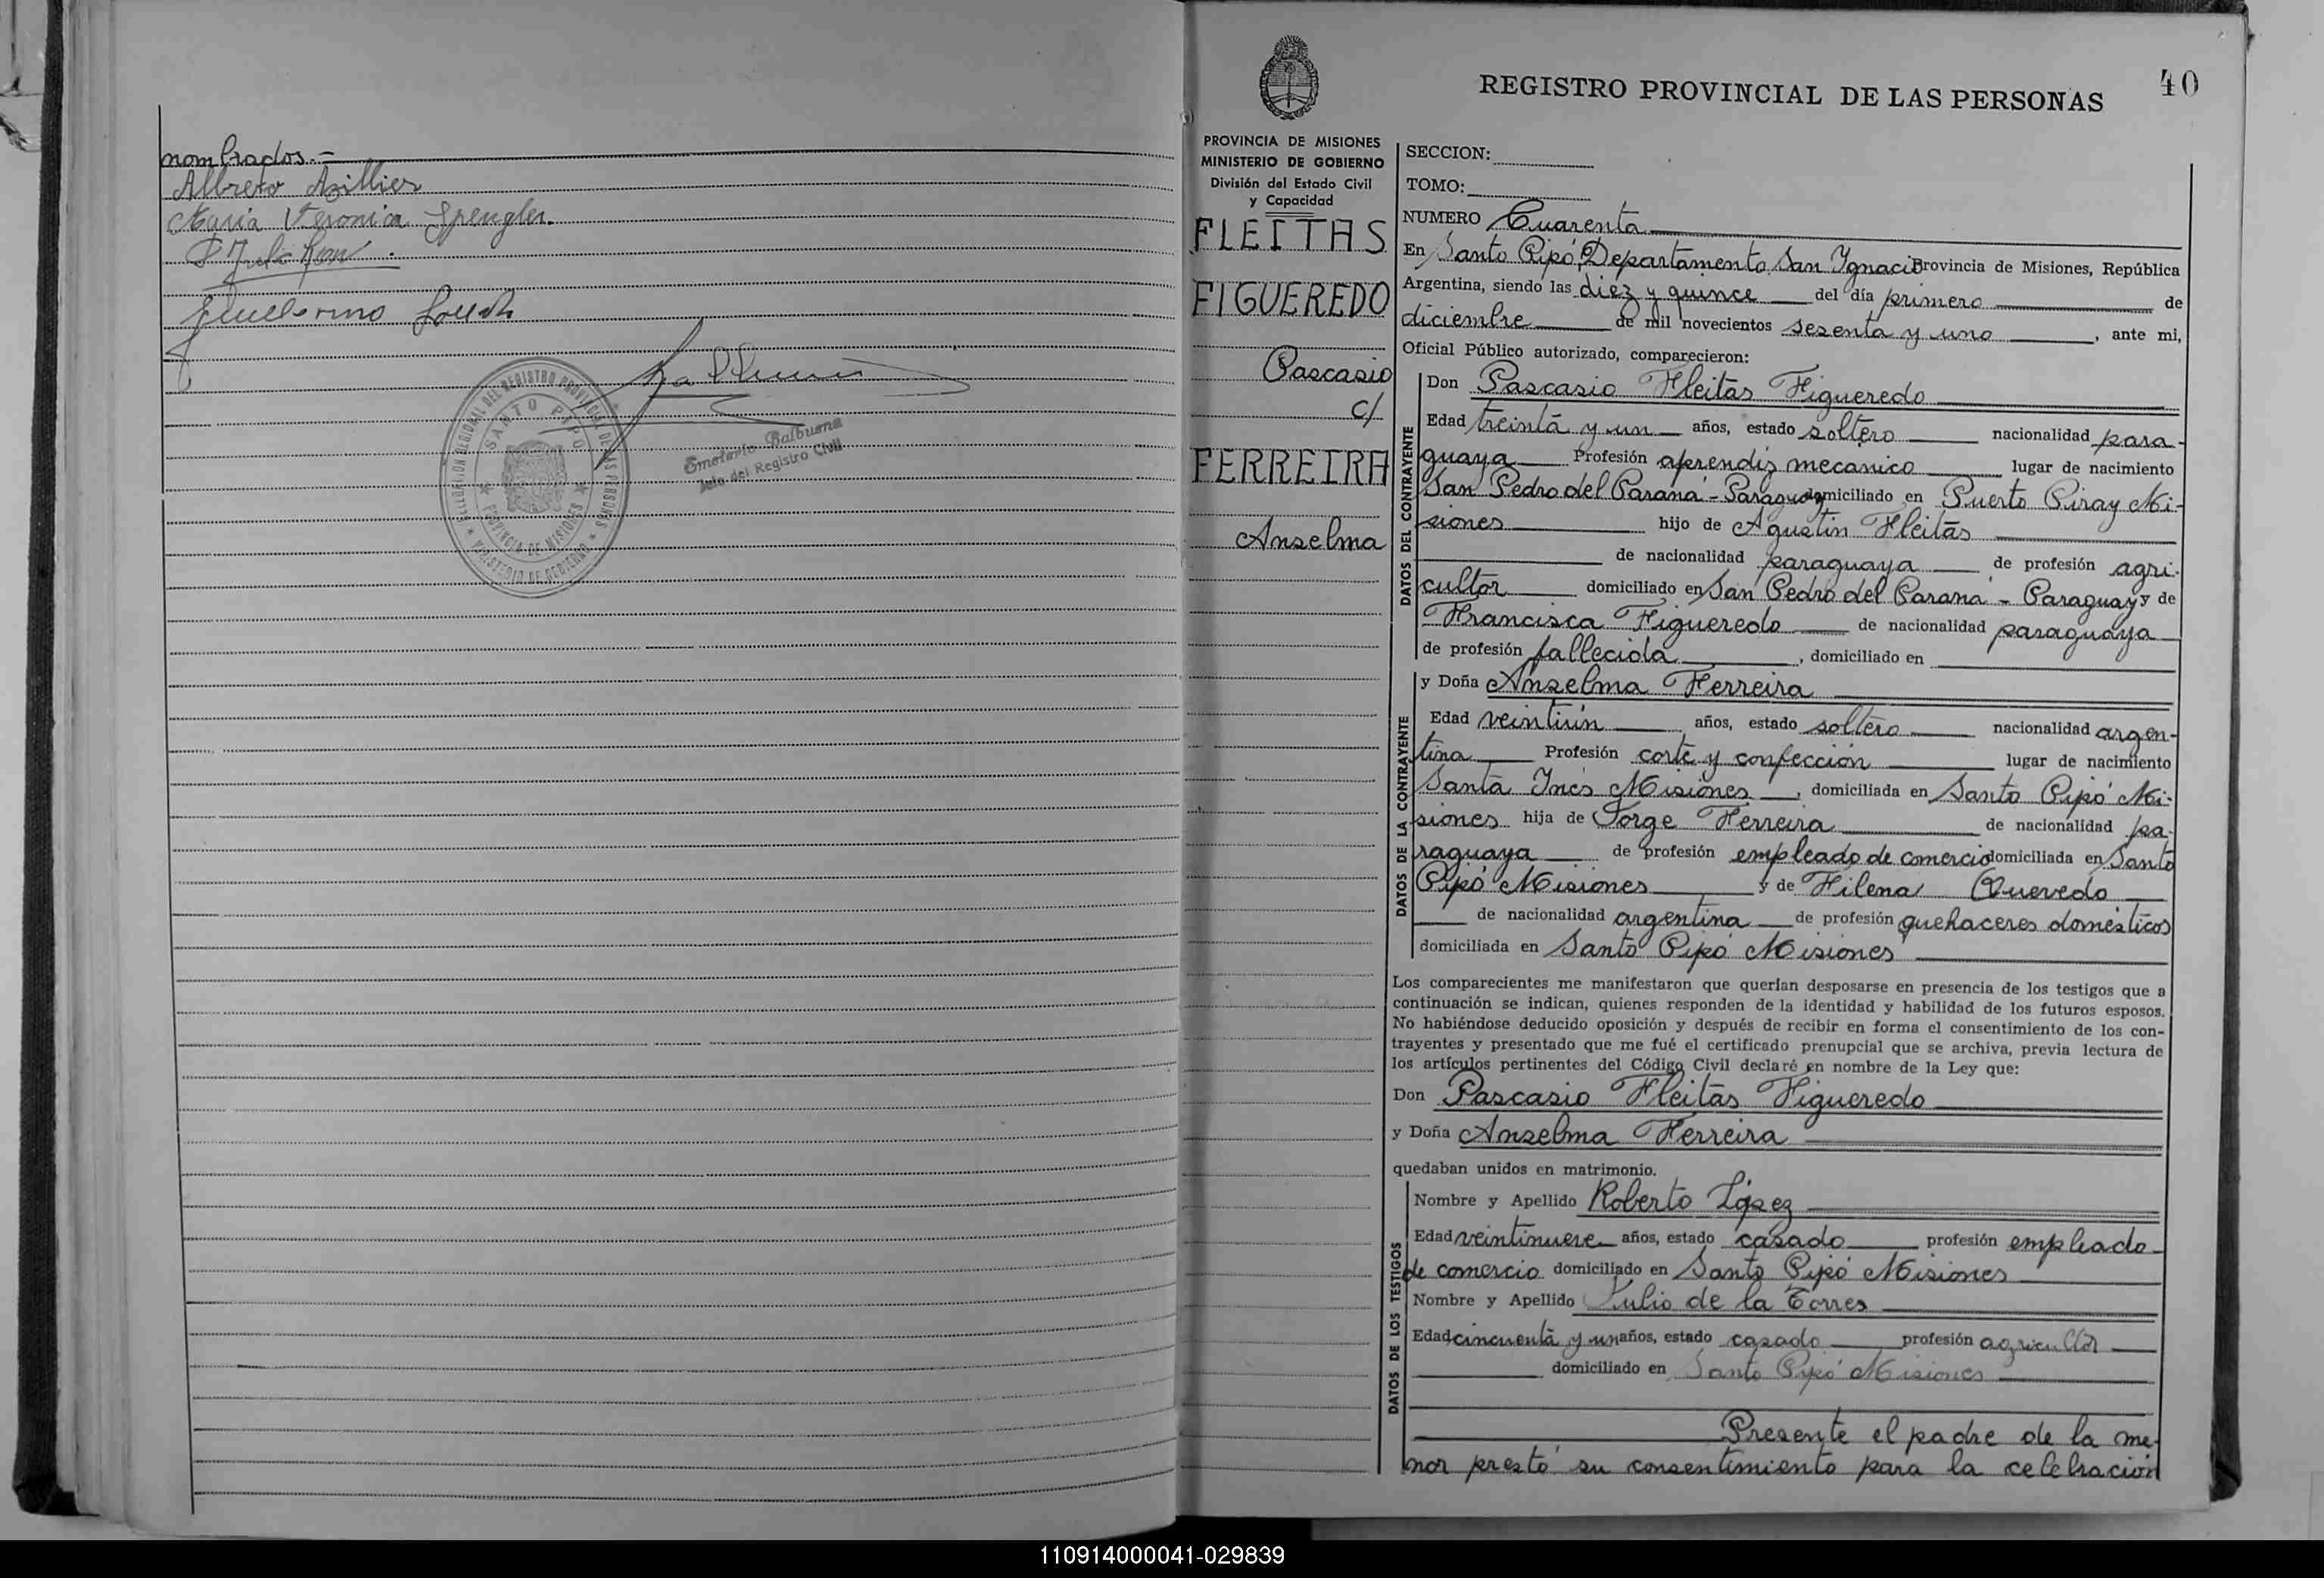 nombrados.-
Maria Veronica Spengler.
REGISTRO PROVINCIAL DE LAS PERSONAS
SANTO PIPO
PROVINCIA DE MISIONES
MINISTERIO DE GOBIERNO
Balbuena
Jefe del Registro Civil
REGISTRO PROVINCIAL DE LAS PERSONAS
40
PROVINCIA DE MISIONES
MINISTERIO DE GOBIERNO
División del Estado Civil
y Capacidad
FLEITAS
FIGUEREDO
Pascasio
c/
FERREIRA
Anselma
SECCION:
TOMO:
NUMERO Cuarenta
En Santo Pipó, Departamento San Ygnacio Provincia de Misiones, República
Argentina, siendo las diez y quince del día primero de
diciembre de mil novecientos sesenta y uno, ante mi,
Oficial Público autorizado, comparecieron:
DATOS DEL CONTRAYENTE
Don Pascasio Fleitas Figueredo
Edad treinta y un años, estado soltero nacionalidad para-
guaya Profesión aprendiz mecanico lugar de nacimiento
San Pedro del Paraná - Paraguay domiciliado en Puerto Piray Mi-
siones hijo de Agustin Fleitas
de nacionalidad paraguaya de profesión agri-
cultor domiciliado en San Pedro del Paraná - Paraguay y de
Francisca Figueredo de nacionalidad paraguaya
de profesión fallecida, domiciliado en
DATOS DE LA CONTRAYENTE
y Doña Anselma Ferreira
Edad veintiún años, estado soltero nacionalidad argen-
tina Profesión corte y confección lugar de nacimiento
Santa Inés Misiones, domiciliada en Santo Pipó Mi-
siones hija de Jorge Ferreira de nacionalidad pa-
raguaya de profesión empleado de comercio domiciliada en Santo
Pipó Misiones y de Filena Quevedo
de nacionalidad argentina de profesión quehaceres domésticos
domiciliada en Santo Pipó Misiones
Los comparecientes me manifestaron que querían desposarse en presencia de los testigos que a
continuación se indican, quienes responden de la identidad y habilidad de los futuros esposos.
No habiéndose deducido oposición y después de recibir en forma el consentimiento de los con-
trayentes y presentado que me fué el certificado prenupcial que se archiva, previa lectura de
los artículos pertinentes del Código Civil declaré en nombre de la Ley que:
Don Pascasio Fleitas Figueredo
y Doña Anselma Ferreira
quedaban unidos en matrimonio.
DATOS DE LOS TESTIGOS
Nombre y Apellido Roberto López
Edad veintinueve años, estado casado profesión empleado
de comercio domiciliado en Santo Pipó Misiones
Nombre y Apellido Julio de la Torres
Edad cincuenta y un años, estado casado profesión agricultor
domiciliado en Santo Pipó Misiones
Presente el padre de la me-
nor prestó su consentimiento para la celebración
110914000041-029839